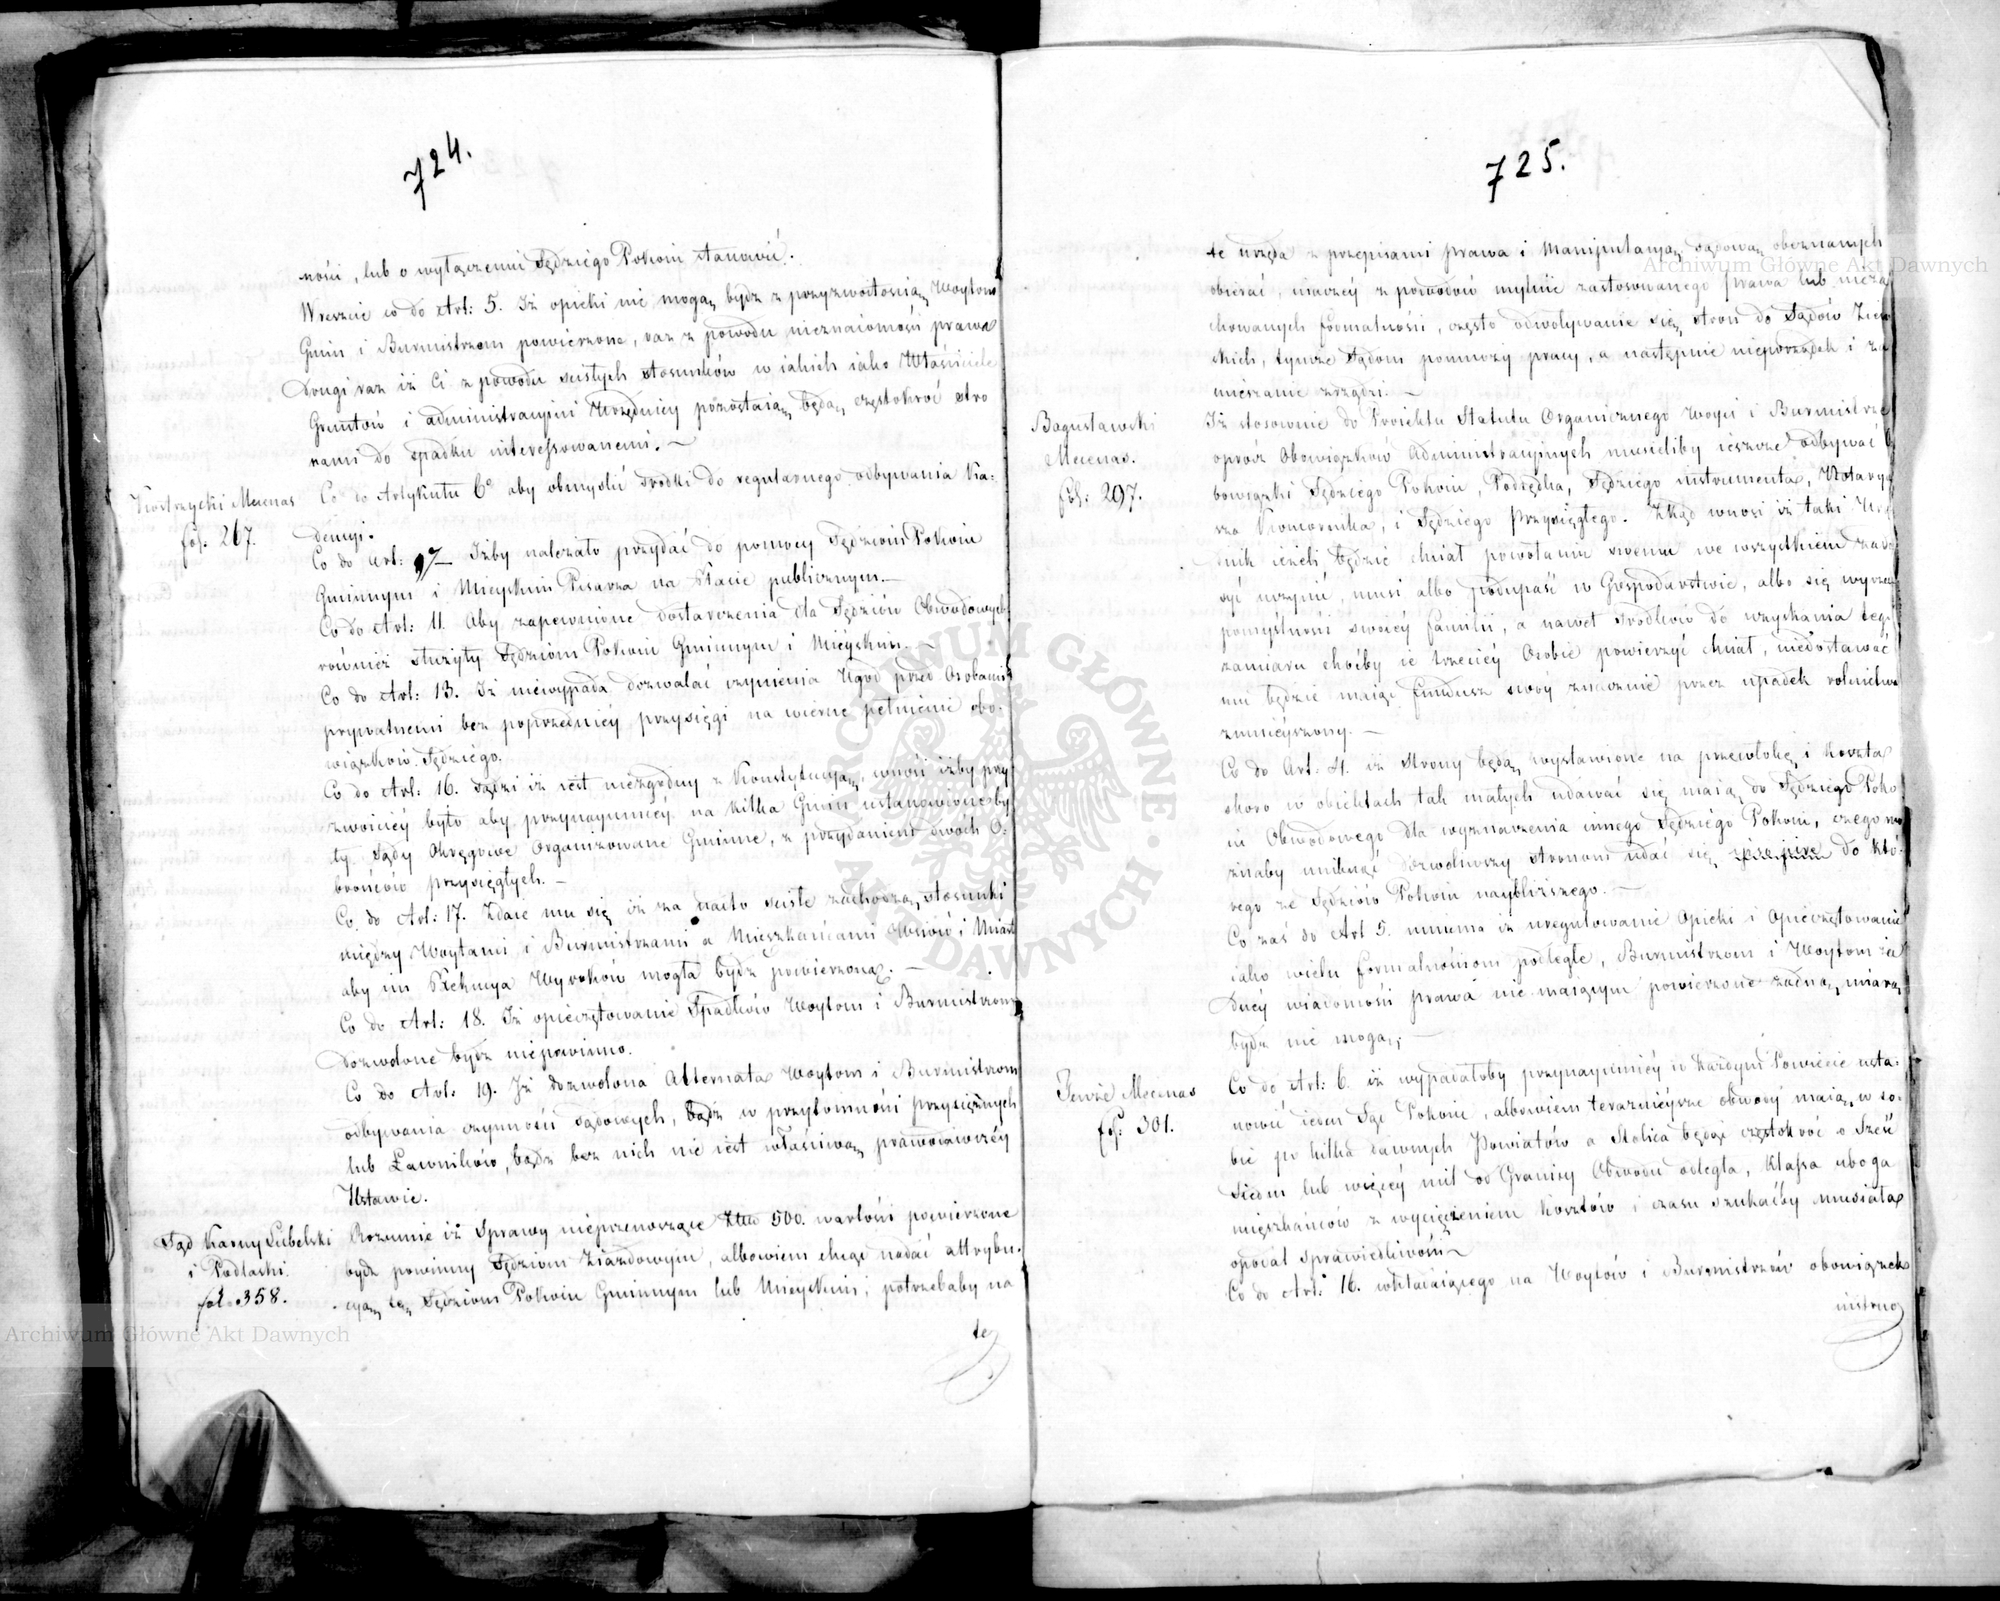 724.
ności, lub o wyłączeniu Sędziego Pokoiu stanowić.
Wreszcie co do Art: 5. Iż opieki nie mogą bydź z przyzwoitością Woytom
Gmin i Burmistrzom powierzone, raz z powodu nieznaiomości prawa
Drugi raz iż Ci z powodu scisłych stosunków w iakich iako Właściciele
Gruntów i administracyini Urzędnicy pozostaią, będą częstokroć stro
nami do spadku interessowanemi. ~
Kostrzycki Mecenas
fol. 267.
Co do Artykułu 6º aby obmyślić srodki do regularnego odbywania Ka-
dencyi.
Co do Art: 7 Iżby należało przydać do pomocy Sędziemu Pokoiu
Gminnym i Mieyskim Pisarza na Płacie publicznym. —
Co do Art: 11. Aby zapewnione dostarczenia dla Sędziów Obwodowych
również służyły Sędziom Pokoiu Gminnym i Mieyskim. —
Co do Art: 13. Iż niewypada dozwalać czynienia Ugod przed Osobami
prywatnemi bez poprzedniéy przysięgi na wierne pełnienie obo-
wiązków Sędziego.
Co do Art: 16. sądzi iż iest niezgodny z Konstytucyą, wnosi iżby przy
zwoiciéy było aby przynaymniéy na kilka Gmin ustanowione by
ły Sądy Okręgowe Organizowane Gminne, z przydaniem dwóch O-
brońców przysięgłych. —
Co do Art: 17. Zdaie mu się iż za nadto scisłe zachodzą stosunki
między Woytami i Burmistrzami a Mieszkańcami Wsiów i Miast
aby im Exekucya Wyroków mogła bydź powierzoną. —
Co do Art: 18. Iż opieczętowanie Spadków Woytom i Burmistrzom
dozwolone bydź niepowinno.
Co do Art: 19. Iż dozwolona Alternata Woytom i Burmistrzom
odbywania czynności sądowych, bądź w przytomności przysiężnych
lub Ławników, bądź bez nich nie iest właściwą prawodawczéy
Ustawie.
Sąd Karny Lubelski
i Podlaski.
fol. 358.
Rozumie iż Sprawy nieprzenoszące 500. wartości powierzone
bydź powinny Sędziom Ziazdowym, albowiem chcąc nadać attrybu-
cyą tę Sędziom Pokoiu Gminnym lub Mieyskim, potrzebaby na
te
725.
te urzęda z przepisami prawa i Manipulacyą sądową obeznanych
obierać, inaczéy z powodów mylnie zastosowanego prawa lub nieza
chowanych formalności, częste odwoływanie się stron do Sądów Ziem
skich, tymże Sądom pomnoży pracy, a następnie nieporządek i za
mieszanie zrządzi. —
Bogusławski
Mecenas.
fol: 297.
Iż stosownie do Proiektu Statutu Organicznego Woyci i Burmistrze
oprócz Obowiązków Administracyjnych musieliby ieszcze odbywać O
bowiązki Sędziego Pokoiu, Podsędka, Sędziego instrumenta, Notaryu
sza Komornika, i Sędziego Przysięgłego. Zkąd wnosi iż taki Urzę
dnik ieżeli będzie chciał powołaniu swemu we wszystkiem zado
syć uczynić, musi albo podupaść w Gospodarstwie, albo się wyrzec
pomyślności swoiéy familii, a nawet srodków do uzyskania tego
zamiaru choćby ie trzeciéy Osobie powierzyć chciał, niedostawać
mu będzie maiąc fundusz swóy znacznie przez upadek rolnictwa
zmnieyszony. —
Co do Art: 4. iż Strony będą wystawione na przewłokę i koszta
skoro w obiektach tak małych udawać się maią do Sędziego Poko
iu Obwodowego dla wyznaczenia innego Sędziego Pokoiu, czego mo
żnaby uniknąć dozwoliwszy stronom udać się do któ-
rego ze Sędziów Pokoiu naybliższego. —
Co zaś do Art 5. mniema iż uregulowanie Opieki i Opieczętowanie
iako wielu formalnościom podległe, Burmistrzom i Woytom ża
dnéy wiadomości prawa nie maiącym powierzone żadną miarą
bydź nie mogą, —
Tenże Mecenas
fol: 301.
Co do Art: 6. iż wypadałoby przynaymniéy w Każdym Powiecie usta-
nowić ieden Sąd Pokoiu, albowiem teraźnieysze obwody maią w so-
bie po kilka dawnych Powiatów a Stolica będąc częstokroć o Sześć
Siedm lub więcéy mil od Granicy Obwodu odległa, Klassa uboga
mieszkańców z wycięczeniem kosztów i czasu szukaćby musiała
opodal Sprawiedliwości ~
Co do Art: 16. wkładaiącego na Woytów i Burmistrzów obowiązek
instruo